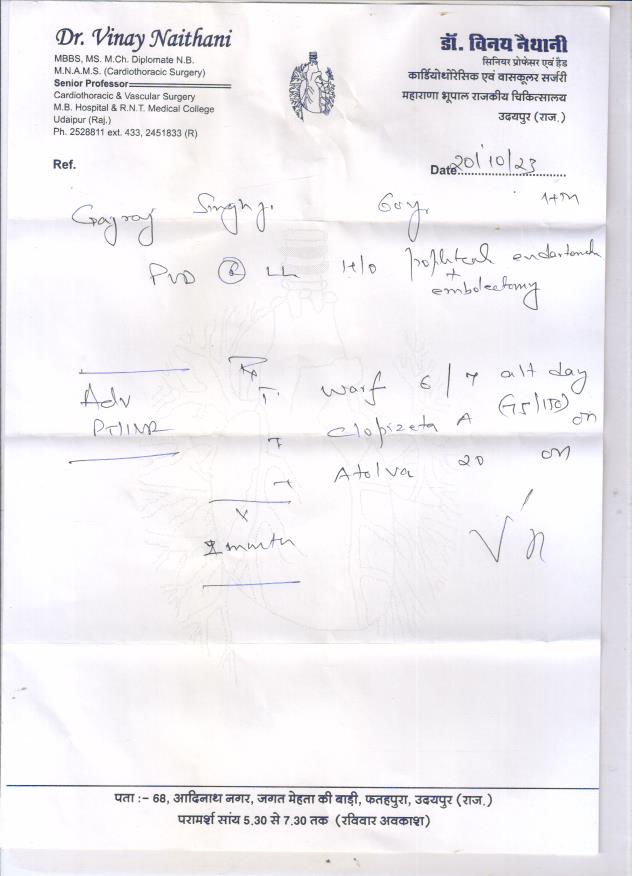 Dr. Vinay Naithani
MBBS, MS. M.Ch. Diplomate N.B.
M.N.A.M.S. (Cardiothoracic Surgery)
Senior Professor
Cardiothoracic & Vascular Surgery
M.B. Hospital & R.N.T. Medical College
Udaipur (Raj.)
Ph. 2528811 ext. 433, 2451833 (R)
डॉ. विनय नैथानी
सिनियर प्रोफेसर एवं हैड
कार्डियोथोरेसिक एवं वासकूलर सर्जरी
महाराणा भूपाल राजकीय चिकित्सालय
उदयपुर (राज.)
Ref.
Date 20/10/23
Gajraj Singh ji 60y.
PVD R LL H/O popliteal
+
embolectomy
Rx
Adv T. Warf 6/7 alt day
PT/INR T Clopizeta A (75/150) on
T Atolva 20 on
x
पता :- 68, आदिनाथ नगर, जगत मेहता की बाड़ी, फतहपुरा, उदयपुर (राज.)
परामर्श सांय 5.30 से 7.30 तक (रविवार अवकाश)